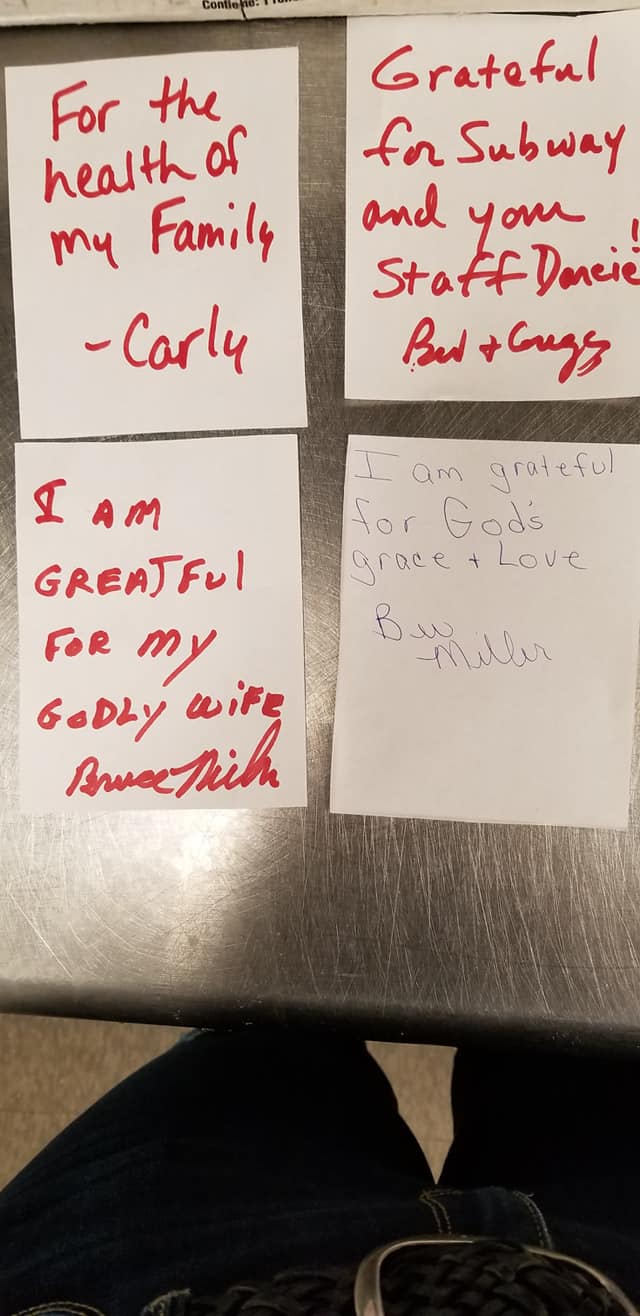 For the
health of
my Family
-Carly
Grateful
for Subway
and your
Staff Darcie!
I AM
GREATFul
FOR my
GODLY WIFE
Bruce
I am grateful
for God's
grace + Love
Miller